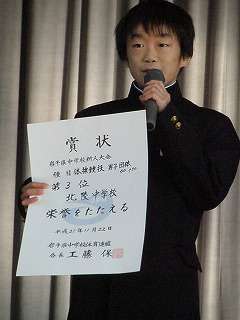 賞状
岩手県中学校新人大会
種目 体操競技 男子団体
第3位
北陵中学校
栄誉をたたえる
平成21年11月22日
岩手県中学校体育連盟
会長 工藤 保